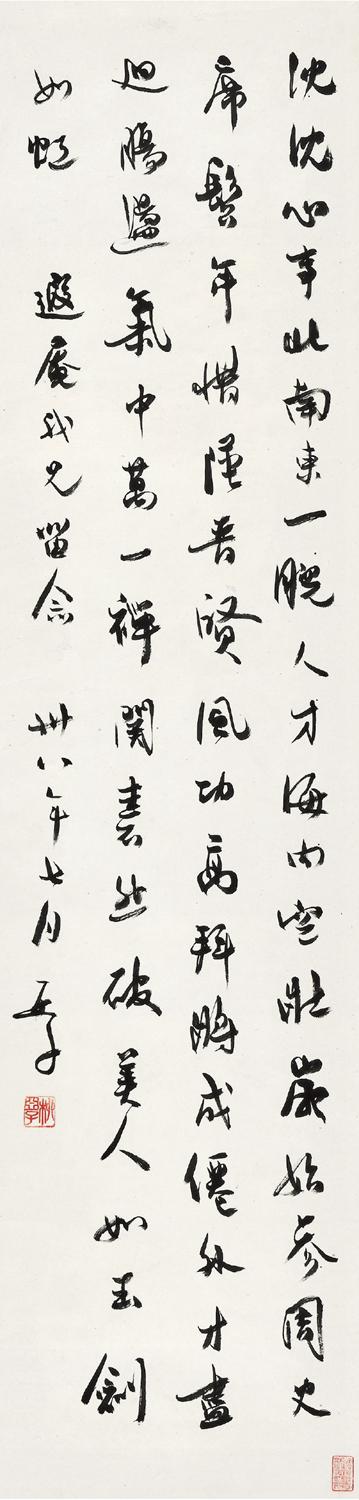 沈沈心事北南東一睨人才海內空壯歲始參周史
席髫年惜墮晉賢風功高拜將成僊外才盡
迴腸盪氣中萬一禪關砉然破美人如玉劍
如虹 遐庵我兄留念 卅八年七月 亞子